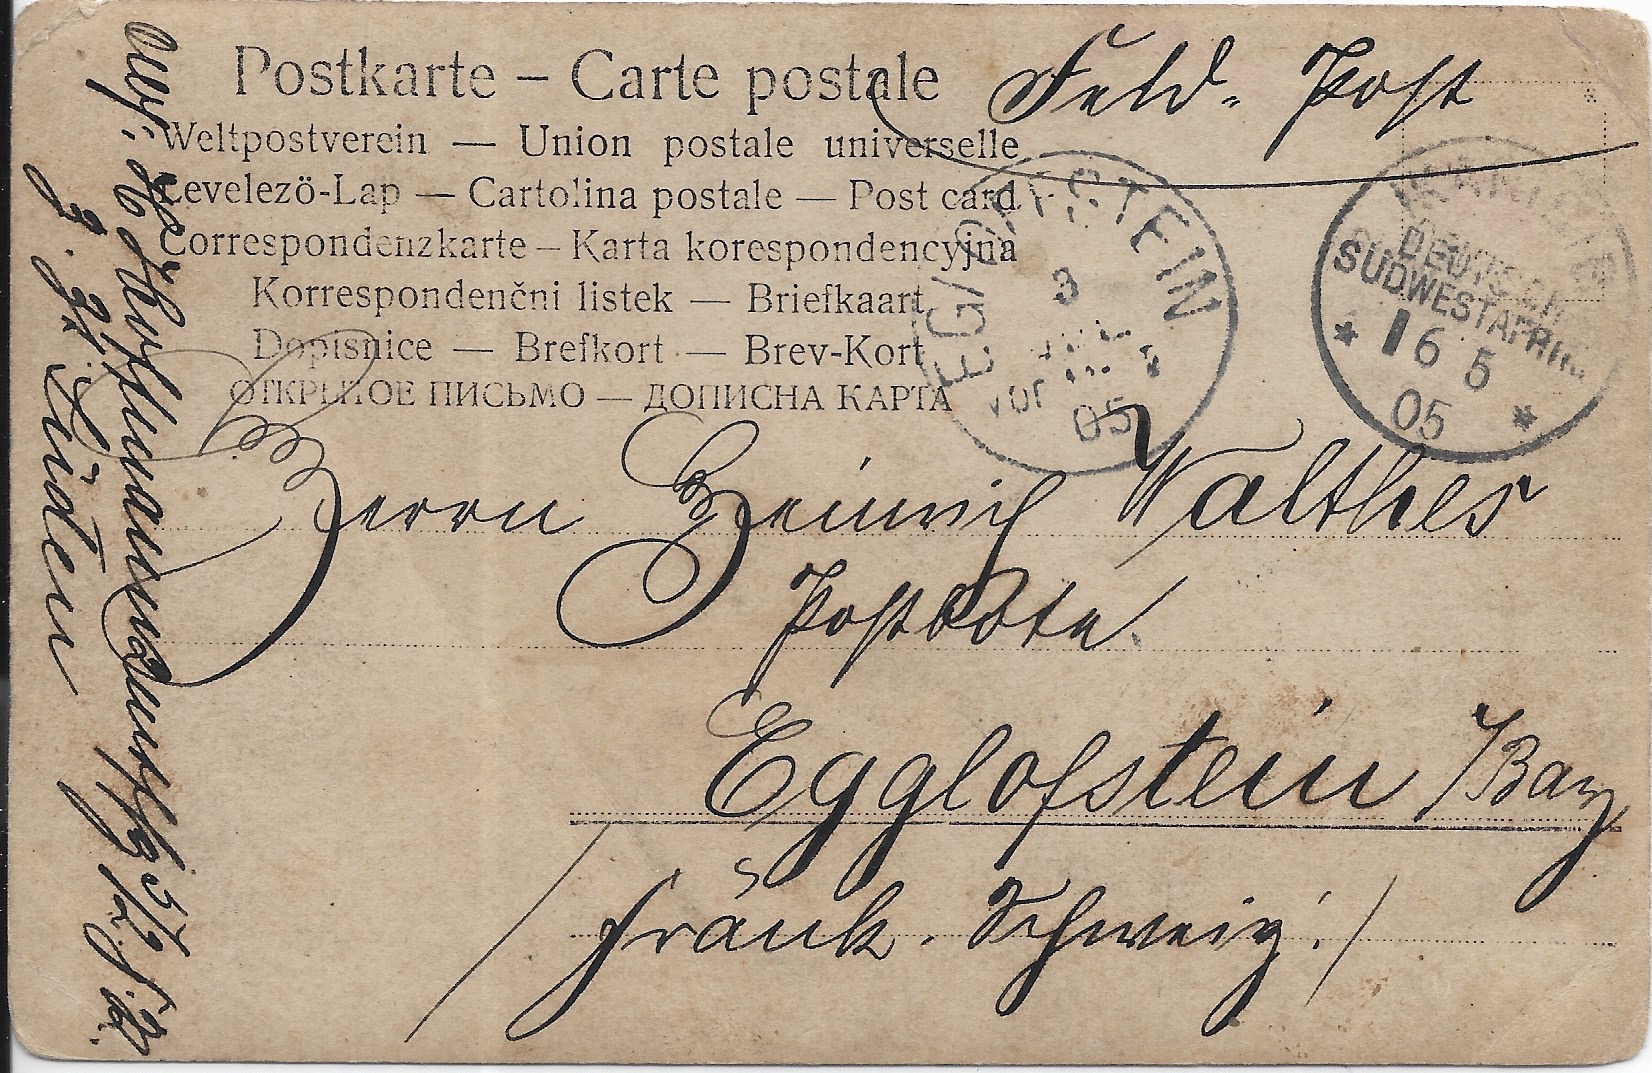 Postkarte – Carte postale
Weltpostverein — Union postale universelle
Levelezö-Lap — Cartolina postale — Post card
Correspondenzkarte – Karta korespondencyjna
Korrespondenčni listek — Briefkaart
Dopisnice — Brefkort — Brev-Kort
ОТКРЫТОЕ ПИСЬМО — ДОПИСНА КАРТА
Feld- Post
EGLOFFSTEIN
3
05
DEUTSCH
SÜDWESTAFRIKA
16 5
05
Herrn Heinrich Walthes
Postbote
Egglofstein /Bay
fränk. Schweiz!/
z. Zt. Süden